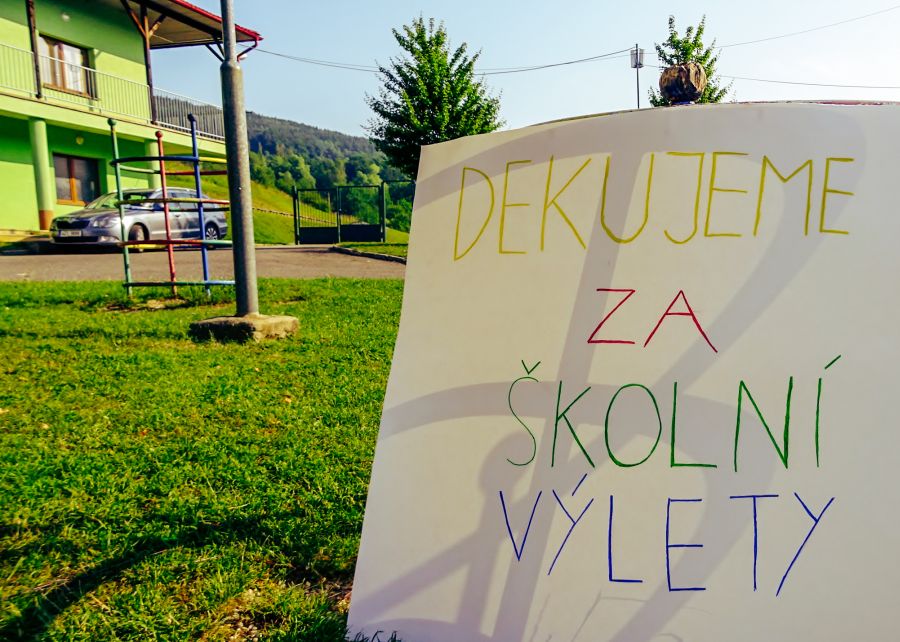 DEKUJEME
ZA
ŠKOLNÍ
VÝLETY